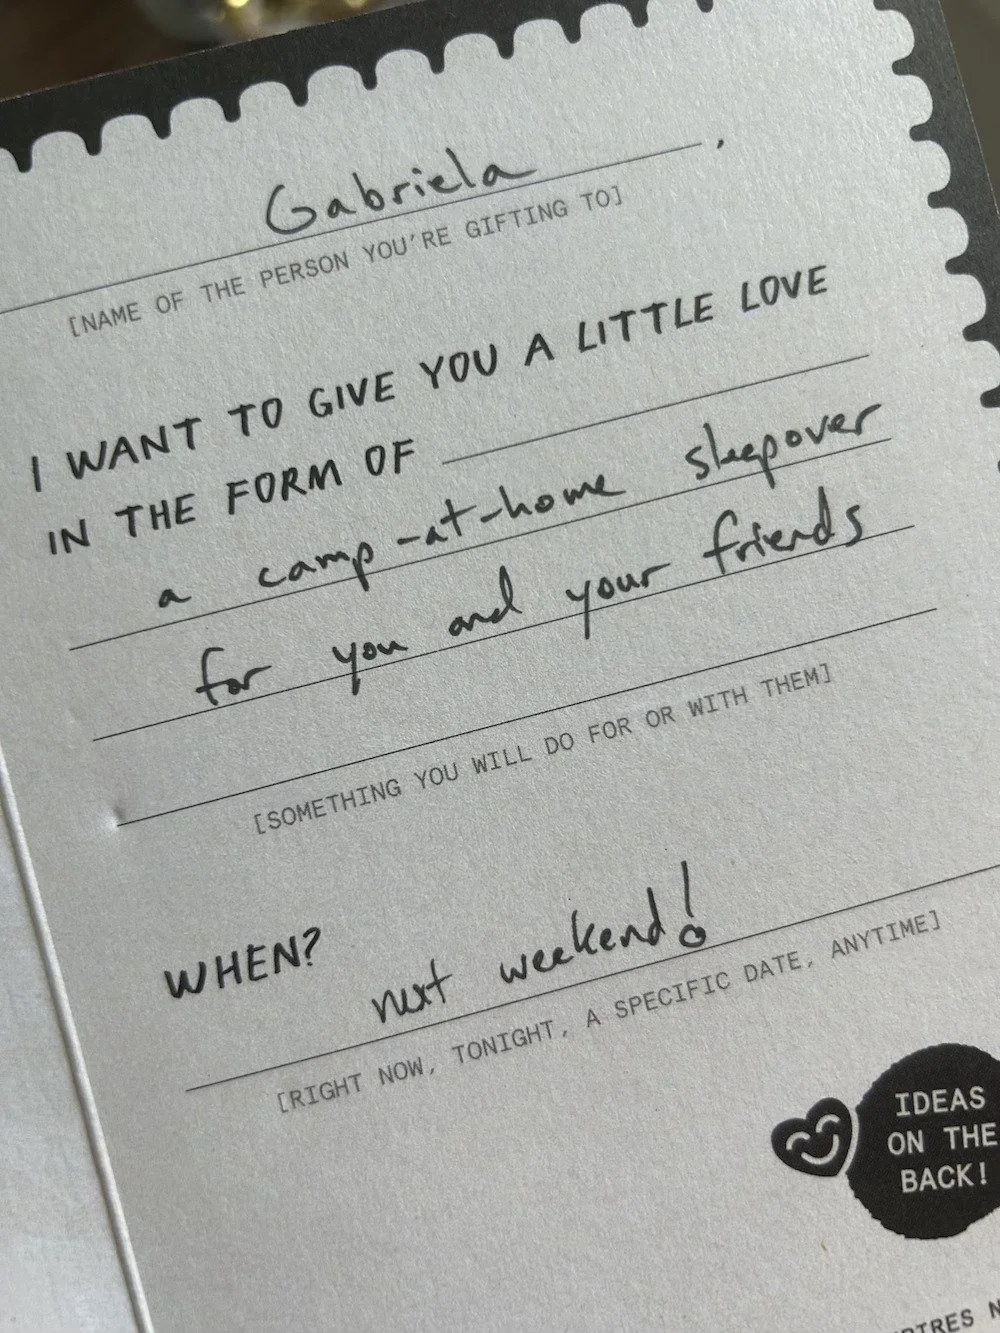 Gabriela .
[NAME OF THE PERSON YOU'RE GIFTING TO]
I WANT TO GIVE YOU A LITTLE LOVE
IN THE FORM OF
a camp-at-home sleepover
for you and your friends
[SOMETHING YOU WILL DO FOR OR WITH THEM]
WHEN? next weekend!
[RIGHT NOW, TONIGHT, A SPECIFIC DATE, ANYTIME]
IDEAS
ON THE
BACK!